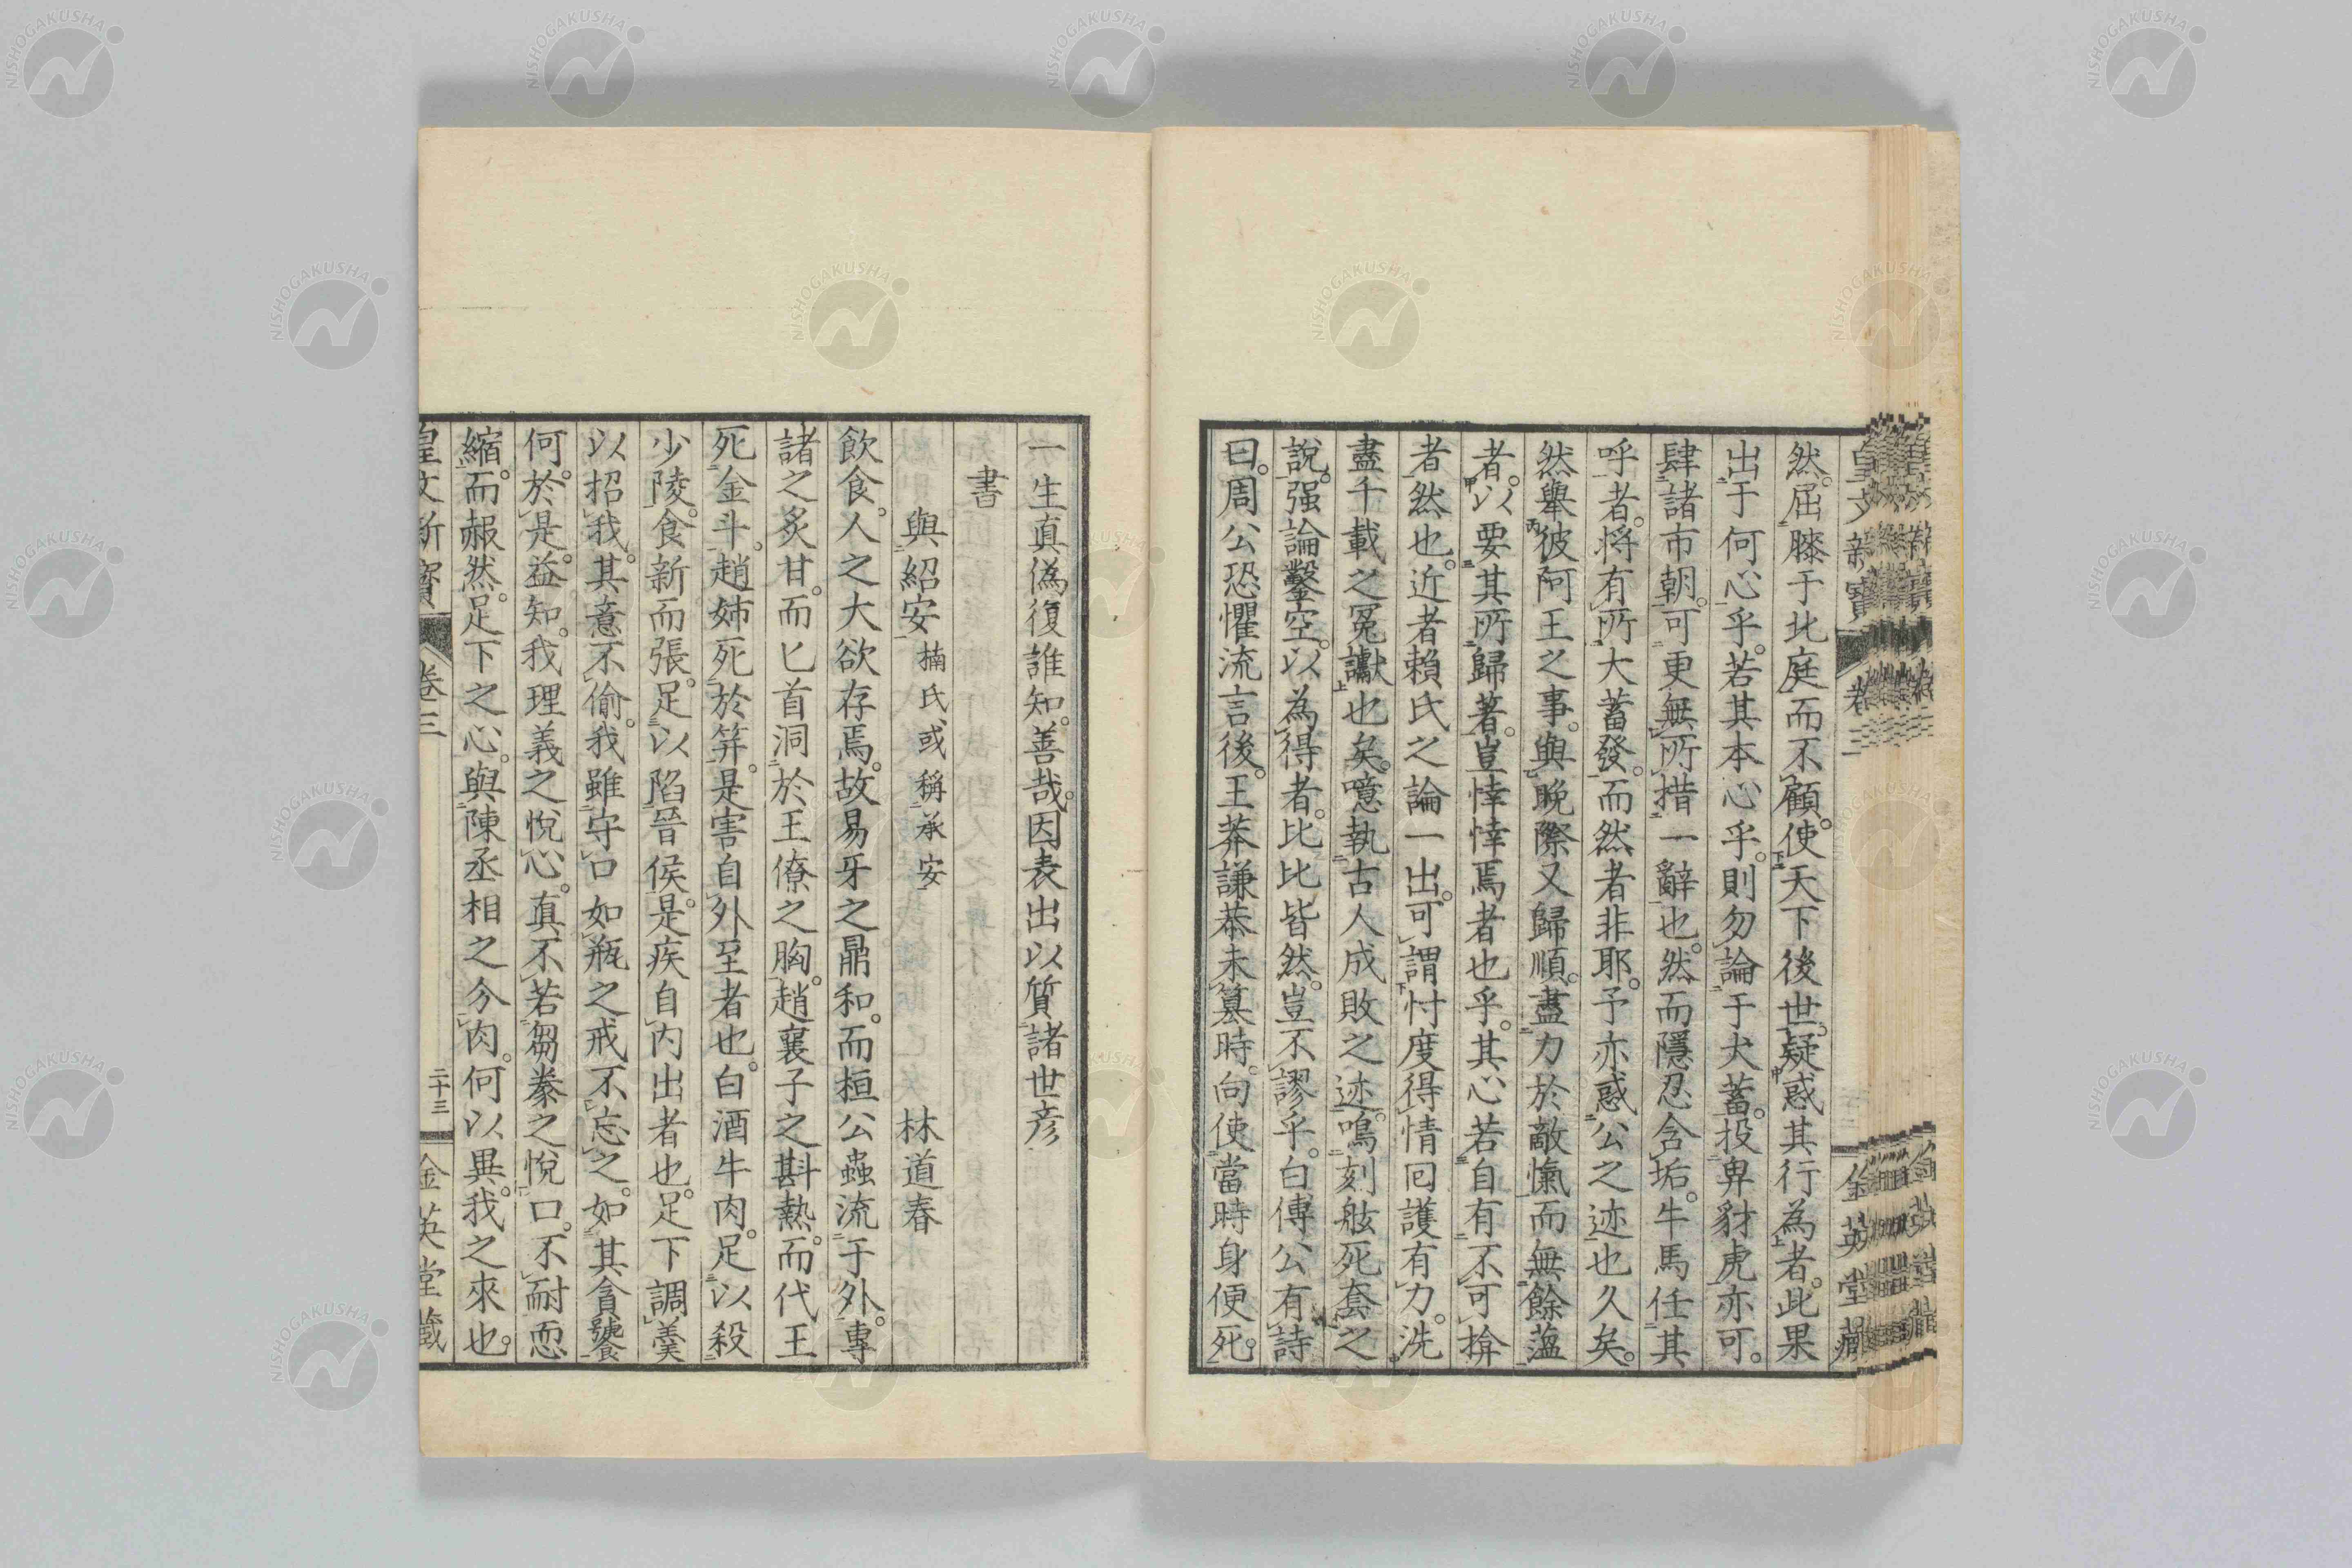 然。屈膝于北庭而不顧。使天下後世。疑惑其行為者。此果
出于何心乎。若其本心乎。則勿論于犬蓄。投卑豺虎亦可。
肆諸市朝。可更無所措一辭也。然而隱忍含垢。牛馬任其
呼者。將有所大蓄發。而然者非耶。予亦惑公之迹也久矣。
然舉彼阿王之事。與晚際又歸順。盡力於敵愾而無餘薀
者。以要其所歸著。豈悻悻焉者也乎。其心若自有不可揜
者然也。近者賴氏之論一出。可謂忖度得情回護有力。洗
盡千載之冤讞也矣。噫執古人成敗之迹。鳴刻舷死套之
說。强論鑿空。以為得者。比比皆然。豈不謬乎。白傳公有詩
曰。周公恐懼流言後。王莽謙恭未簒時。向使當時身便死。
一生真偽復誰知。善哉。因表出以質諸世彦
書
與紹安 㨆氏、或稱承安 林道春
飲食。人之大欲存焉。故易牙之鼎和。而桓公蟲流于外。專
諸之炙甘。而匕首洞於王僚之胸。趙襄子之斟熱。而代王
死金斗。趙姉死於笄。是害自外至者也。白酒牛肉。足以殺
少陵。食新而張。足以陷晉侯。是疾自内出者也。足下調羹
以招我。其意不偷。我雖守口如瓶之戒不忘之。如其貪饕
何。於是益知。我理義之悅心。真不若芻豢之悅口。不耐恧
縮。而赧然。足下之心。與陳丞相之分肉。何以異。我之來也。
皇文新寶 卷三 二十三 金英堂藏